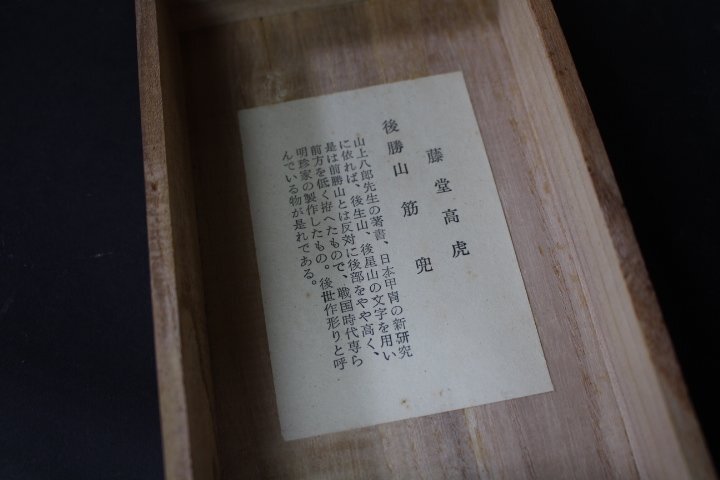 藤堂高虎
後勝山筋兜
山上八郎先生の著書、日本甲冑の新研究
に依れば、後生山、後星山の文字を用い
是は前勝山とは反対に後部をやや高く、
前方を低く拵へたもので、戦国時代専ら
明珍家の製作したもの。後世作形りと呼
んでいる物が是れである。